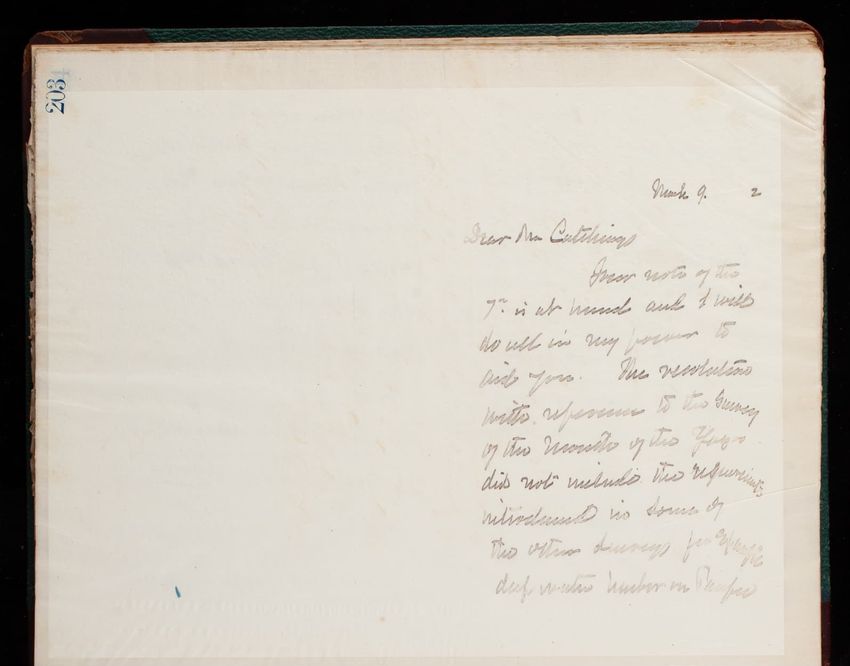 203
March 9. 2
Dear Mr Catchings
Your note of the
7th is at hand and I will
do all in my power to
aid you. The resolution
with reference to the Survey
of the Mouth of the Yazoo
did not include the requirements
introduced in some of
the other surveys for
deep water harbor on